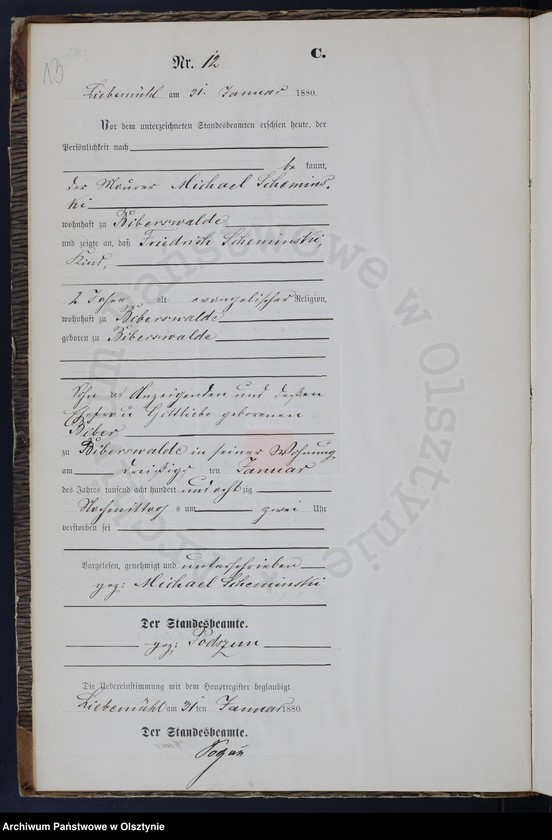 13
C.
Nr. 12
Liebemühl am 31. Januar 1880.
Vor dem unterzeichneten Standesbeamten erschien heute, der
Persönlichkeit nach
be kannt,
der Maurer Michael Schemins-
ki
wohnhaft zu Biberswalde
und zeigte an, daß Friedrich Scheminski,
Kind,
2 Jahre alt evangelischer Religion,
wohnhaft zu Biberswalde
geboren zu Biberswalde
Sohn des Anzeigenden und dessen
Ehefrau Gottliebe geborenen
Biber
zu Biberswalde in seiner Wohnung
am dreißigs ten Januar
des Jahres tausend acht hundert und acht zig
Nachmittag s um zwei Uhr
verstorben sei
Vorgelesen, genehmigt und unterschrieben
gez: Michael Scheminski
Der Standesbeamte.
gez: Podszun
Die Uebereinstimmung mit dem Hauptregister beglaubigt
Liebemühl am 31 ten Januar 1880.
Der Standesbeamte.
Archiwum Państwowe w Olsztynie
Archiwum Państwowe w Olsztynie